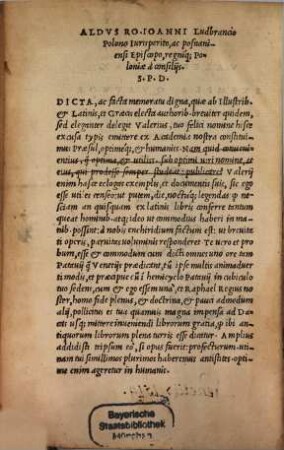 ALDVS RO. IOANNI Ludbrancio
Polono Iurisperito, ac posnani-
ensi Episcopo, regniq; Po-
loniæ à consilijs.
S. P. D.
DICTA, ac facta memoratu digna, quæ ab Illustrib.
& Latinis, et Græcis electa authorib. breuiter quidem,
sed eleganter delegit Valerius, tuo felici nomine hisce
excusa typis emittere ex Academia nostra constitui-
mus Præsul, optimeq;, & humanis. Nam
& utilius. sub optimi uiri nomine, et
eius, qui prodesse semper studeat: publicaret Valerij
enim hæc ecloga exemplis, et documentis suis, sic ego
esse uti es censorat putem, dies, noctuq; legenda. q nesci-
am an quisquam ex latinis libris conferre tantum
queat hominib. atq; ideo ut commodius haberi in ma-
nib. possint: à nobis enchiridium factum est: ut breui-
tati operis, paruitas uoluminis responderet Te uero et pro-
bum, esse, & commodum cum docti omnes uno ore
tem Patauij q Venetijs prædicēt, tū ipse multis animaduer-
ti modis, et præcipue cum hemicyclo Patauij in cubiculo
tuo sedem, cum & ego essem unà, et Raphael Regius no-
ster, homo fide plenus, & doctrina, & pauci admodum
alij, pollicitus es tua quamuis magna impensa ad Da-
cos usq; mittere inueniendi librorum gratia, q ibi anti-
quorum librorum plena turris esse dicatur. Amplius
addidisti teipsum , si opus fuerit: profecturum. uti-
nam tui simillimos plurimos haberemus antistites. opti-
me enim ageretur in humanis.
Bayerische
Staatsbibliothek
München